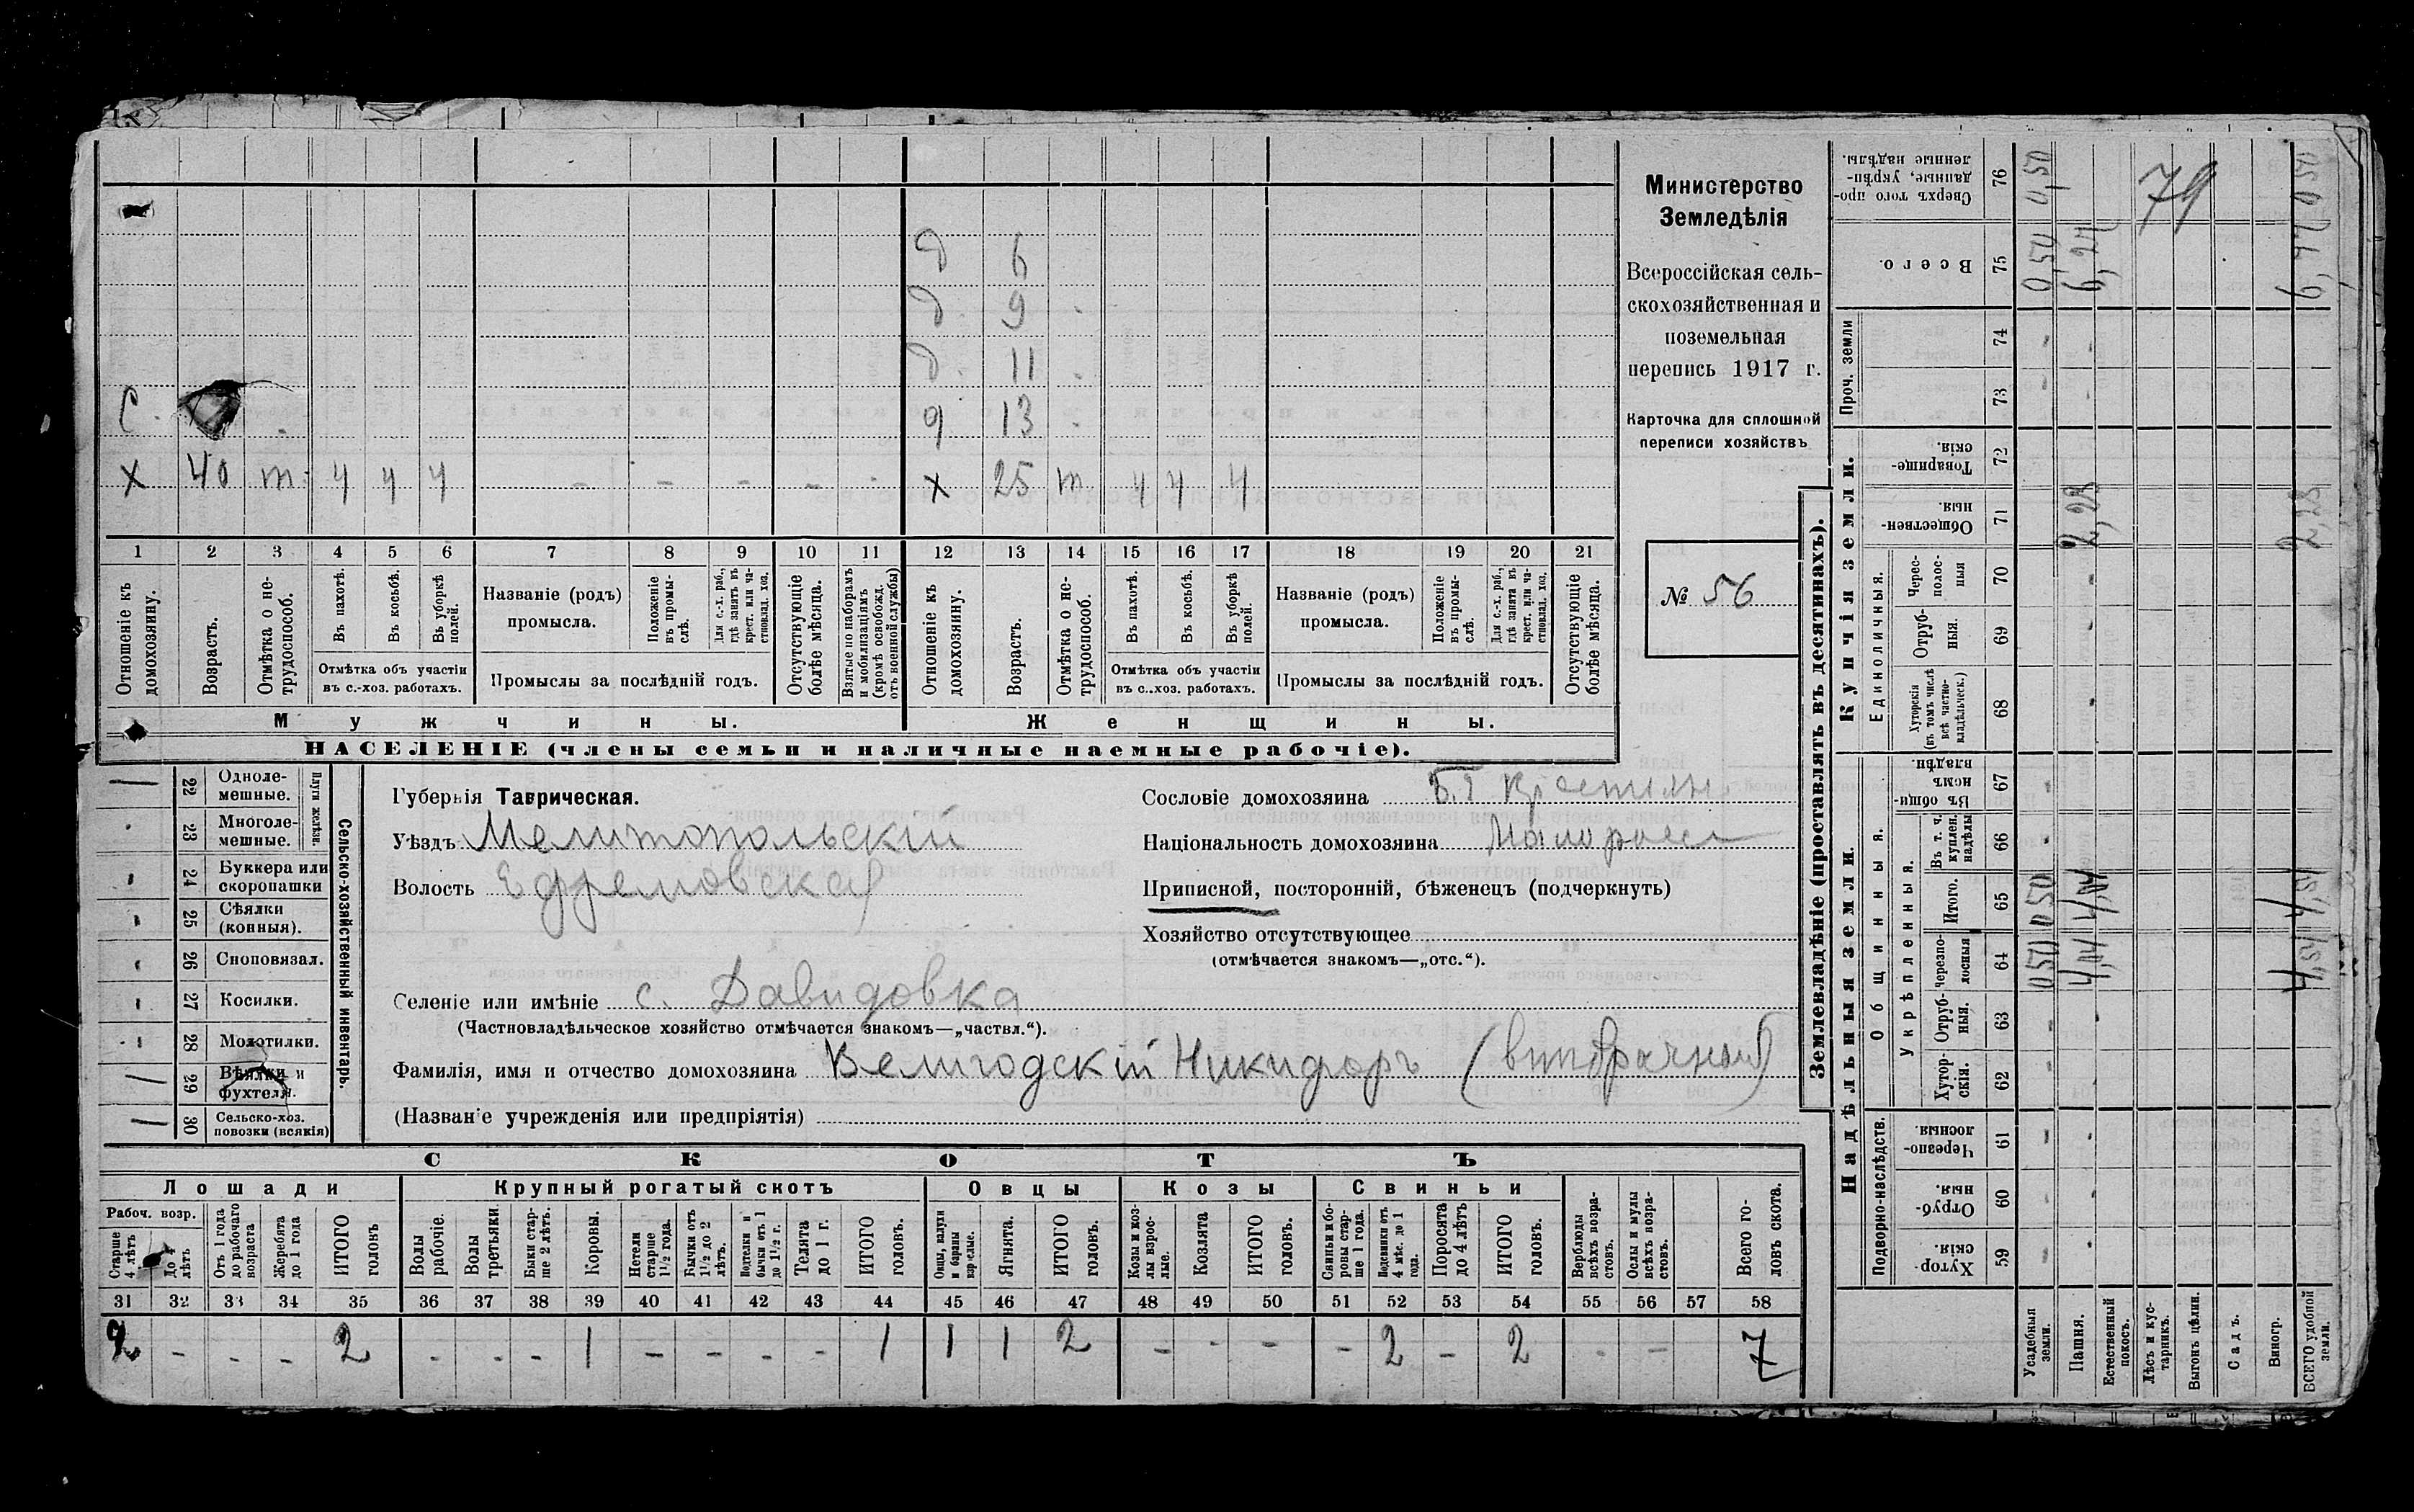 д 6
д. 9 -
д. 11 -
с. - д 13 -
х 40 т. ч ч ч - - - - - х 25 т. ч ч ч
1 2 3 4 5 6 7 8 9 10 11 12 13 14 15 16 17 18 19 20 21
Отношеніе къ домохозяину.
Возрастъ.
Отмѣтка о нетрудоспособ.
Въ пахотѣ.
Въ косьбѣ.
Въ уборкѣ полей.
Отмѣтка объ участіи въ с.-хоз. работахъ.
Названіе (родъ) промысла.
Положеніе въ промыслѣ.
Для с.-х. раб., гдѣ занятъ въ крест. или частновлад. хоз.
Промыслы за послѣдній годъ.
Отсутствующіе болѣе мѣсяца.
Взятые по наборамъ и мобилизаціямъ (кромѣ освобожд. отъ военной службы)
Отношеніе къ домохозяину.
Возрастъ.
Отмѣтка о нетрудоспособ.
Въ пахотѣ.
Въ косьбѣ.
Въ уборкѣ полей.
Отмѣтка объ участіи въ с..хоз. работахъ.
Названіе (родъ) промысла.
Положеніе въ промыслѣ.
Для с.-х. раб., гдѣ занята въ крест. или частновлад. хоз.
Промыслы за послѣдній годъ.
Отсутствующіе болѣе мѣсяца.
Мужчины. Женщины.
НАСЕЛЕНІЕ (члены семьи и наличные наемные рабочіе).
Министерство
Земледѣлія
Всероссійская сель-
скохозяйственная и
поземельная
перепись 1917 г.
Карточка для сплошной
переписи хозяйствъ
№ 56
Сельско-хозяйственный инвентарь.
Плуги желѣзн.
22 Одноле-
мешные.
23 Многоле-
мешные.
24 Буккера или
скоропашки
25 Сѣялки
(конныя).
26 Сноповязал.
27 Косилки.
28 Молотилки.
29 Вѣялки и
фухтели.
30 Сельско-хоз.
повозки (всякія)
Губернія Таврическая.
Уѣздъ Мелитопольскій
Волость Ефремовская
Селеніе или имѣніе с. Давидовка
(Частновладѣльческое хозяйство отмѣчается знакомъ—„частвл.“).
Фамилія, имя и отчество домохозяина Велигодскій Никифоръ
(Назван'е учрежденія или предпріятія)
Сословіе домохозяина
Національность домохозяина Малоросс
Приписной, посторонній, бѣженецъ (подчеркнуть)
Хозяйство отсутствующее
(отмѣчается знакомъ—„отс.“).
СКОТЪ
Лошади Крупный рогатый скотъ Овцы Козы Свиньи
Рабоч. возр.
Старше 4 лѣтъ
До 4 лѣтъ
Отъ 1 года до рабочаго возраста
Жеребята до 1 года
ИТОГО головъ
Волы рабочіе.
Волы третьяки.
Быки старше 2 лѣтъ.
Коровы.
Нетели старше 1½ года.
Бычки отъ 1½ до 2 лѣтъ.
Подтелки и бычки отъ 1 до 1½ г.
Телята до 1 г.
ИТОГО головъ.
Овцы, валухи и бараны взрослые.
Ягнята.
ИТОГО головъ.
Козы и козлы взрослые.
Козлята
ИТОГО головъ.
Свиньи и боровы старше 1 года.
Подсвинки отъ 4 мѣс. до 1 года.
Поросята до 4 лѣтъ
ИТОГО головъ.
Верблюды всѣхъ возрастовъ.
Ослы и мулы всѣхъ возрастовъ.
Всего головъ скота.
31 32 33 34 35 36 37 38 39 40 41 42 43 44 45 46 47 48 49 50 51 52 53 54 55 56 57 58
2 - - - 2 - - - 1 - - - - 1 1 1 2 - - - - 2 - 2 - - 7
Землевладѣніе (проставлять въ десятинахъ).
Надѣльныя земли.
Подворно-наслѣдств.
59 Хуторскія.
60 Отрубныя.
61 Черезполосныя.
Общинныя.
Укрѣпленныя.
62 Хуторскія.
63 Отрубныя.
64 Черезполосныя
65 Итого.
66 Въ т. ч. куплен. надѣлы
67 Въ общинномъ владѣн.
Купчія земли.
Единоличныя.
68 Хуторскія (въ томъ числѣ всѣ частновладѣльческ.)
69 Отрубныя.
70 Чресполосныя
71 Общественныя
72 Товарищескія.
Проч. земли
73
74
75 Всего.
76 Сверхъ того проданные, укрѣпленные надѣлы.
Усадебныя земли. 0,50 0,50 0,50 0,50
Пашня. 4,04 4,04 2,28
Естественный покосъ.
Лѣсъ и кустарникъ.
Выгонъ цѣлин.
Садъ.
Виногр.
ВСЕГО удобной земли. 4,54 4,54 2,28
79